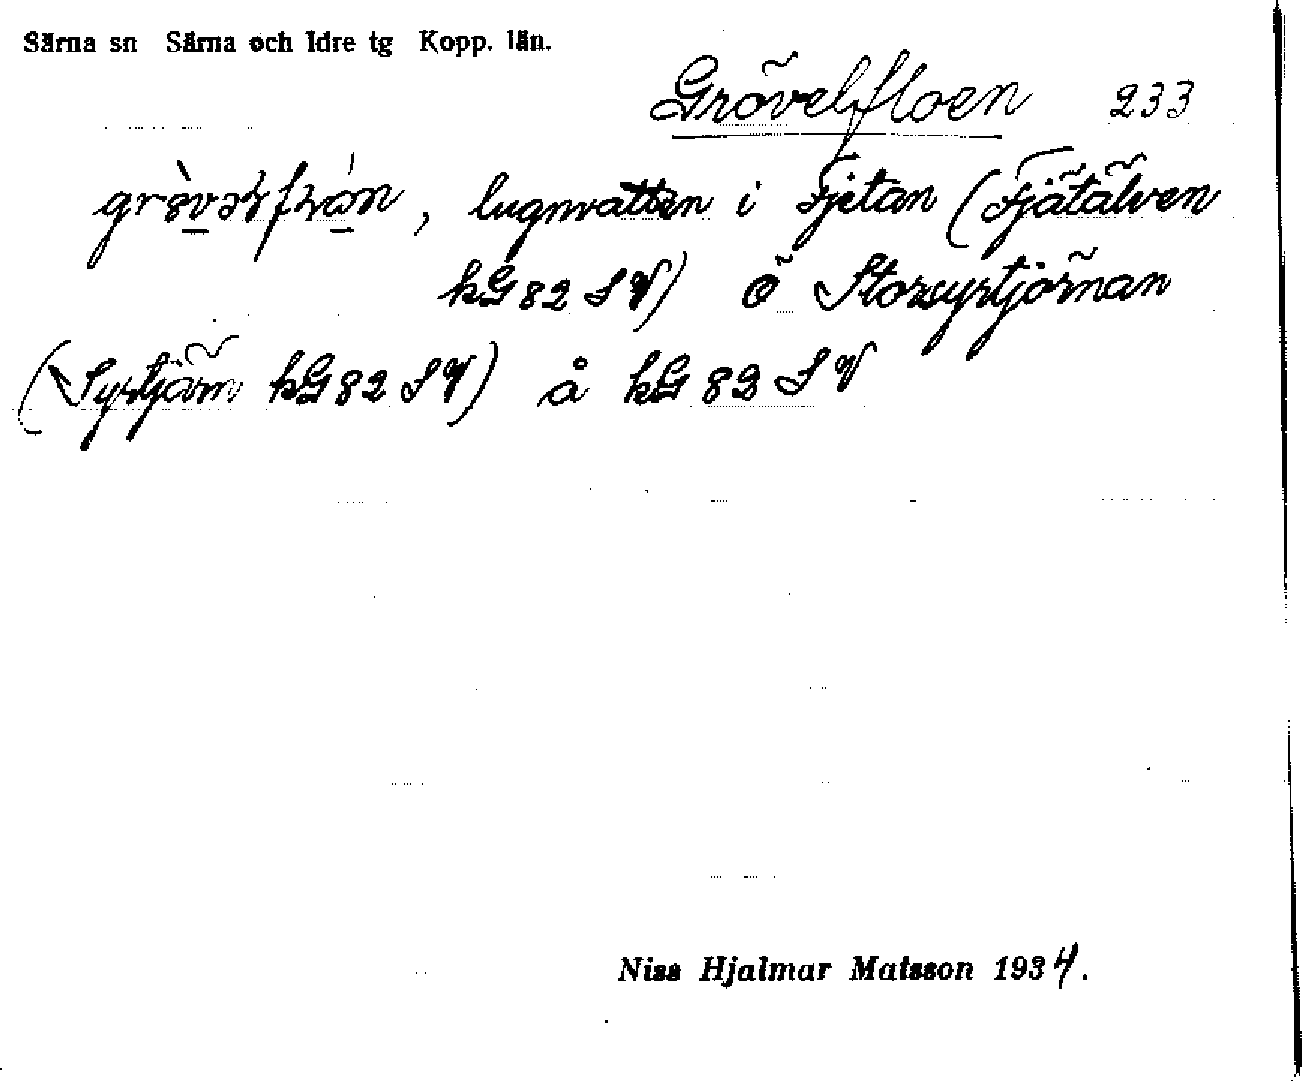 Särna sn Särna och Idre tg Kopp. län.
Grövelfloen 233
lugnvatten i Fjetan (Fjätälven
kG82 SV) Ö Storsyrtjörnan
(Syrtjärn kG82 SV) å kG82 SV
Niss Hjalmar Matsson 1934.